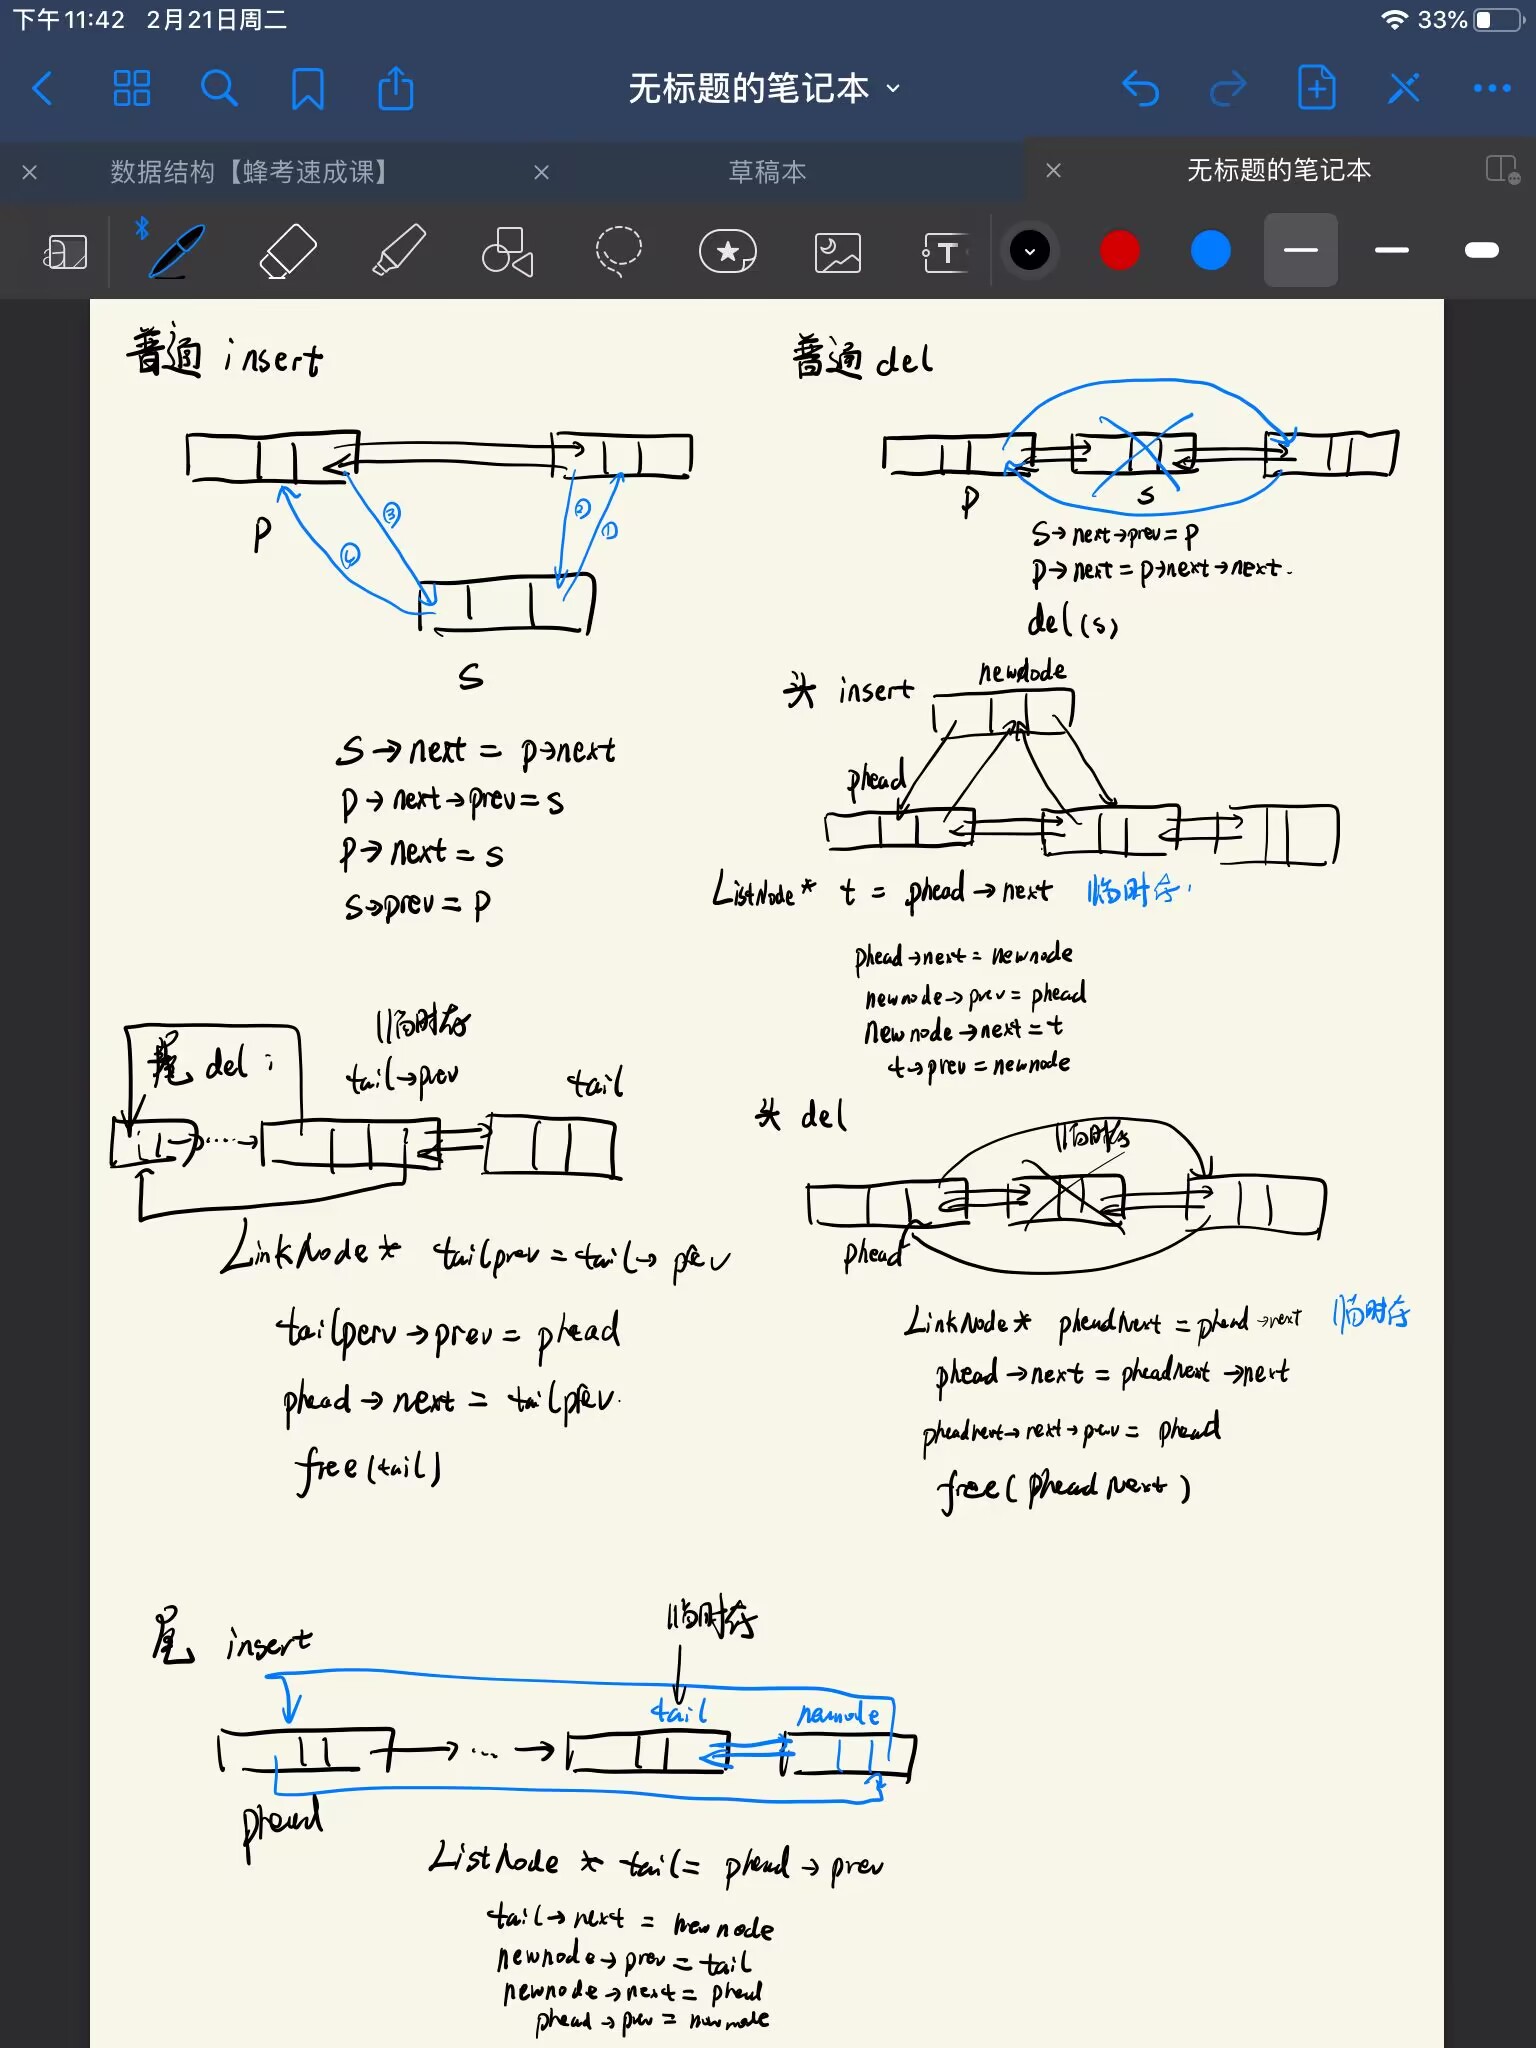 下午11:42 2月21日周二
33%
无标题的笔记本
数据结构【蜂考速成课】
草稿本
无标题的笔记本
T
普通 insert
P
①
②
③
④
S
S→next = p→next
p→next→prev=s
p→next=s
s→prev=p
普通 del
p
s
S→next→prev=p
p→next=p→next→next.
del(s)
头 insert
newnode
phead
ListNode* t = phead→next 临时存.
phead→next=newnode
newnode→prev=phead
newnode→next=t
t→prev=newnode
尾 del:
临时存
tail→prev
tail
LinkNode* tailprev=tail→prev
tailperv→prev=phead
phead→next=tailprev.
free(tail)
头 del
临时存
phead
LinkNode* pheadNext=phead→next 临时存
phead→next=pheadnext→next
pheadnext→next→prev=phead
free(pheadNext)
尾 insert
临时存
tail
newnode
...
phead
ListNode * tail= phead→prev
tail→next = newnode
newnode→prev=tail
newnode→next=phead
phead→prev=newnode